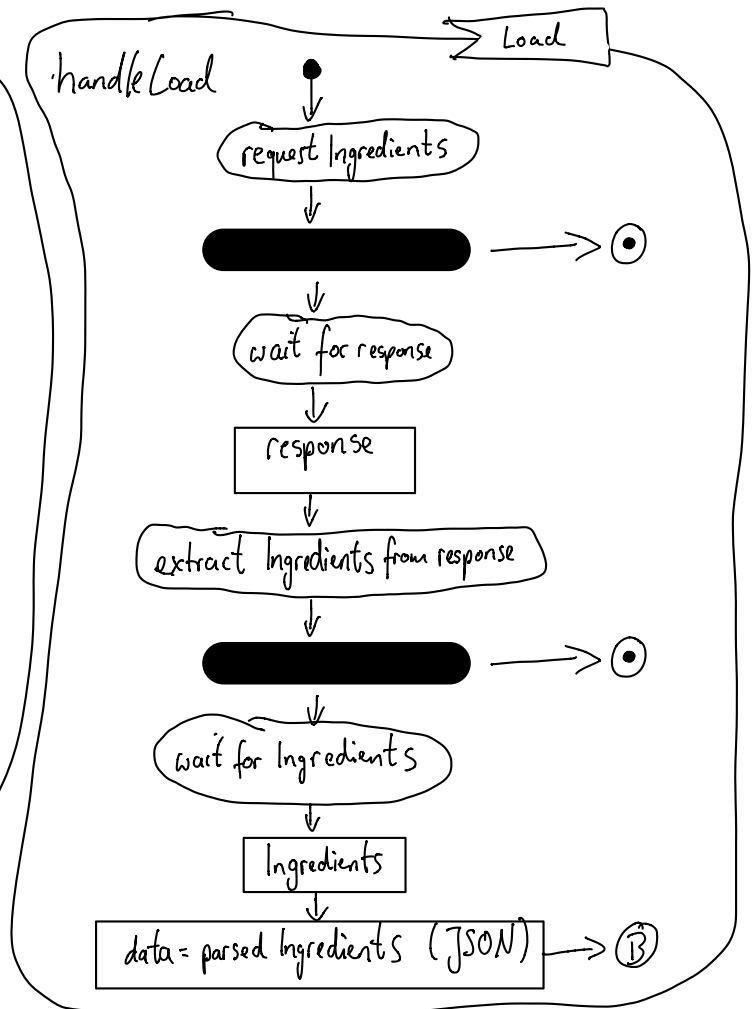 Load
handleLoad
request Ingredients
wait for response
response
extract Ingredients from response
wait for Ingredients
Ingredients
data = parsed Ingredients (JSON)
B